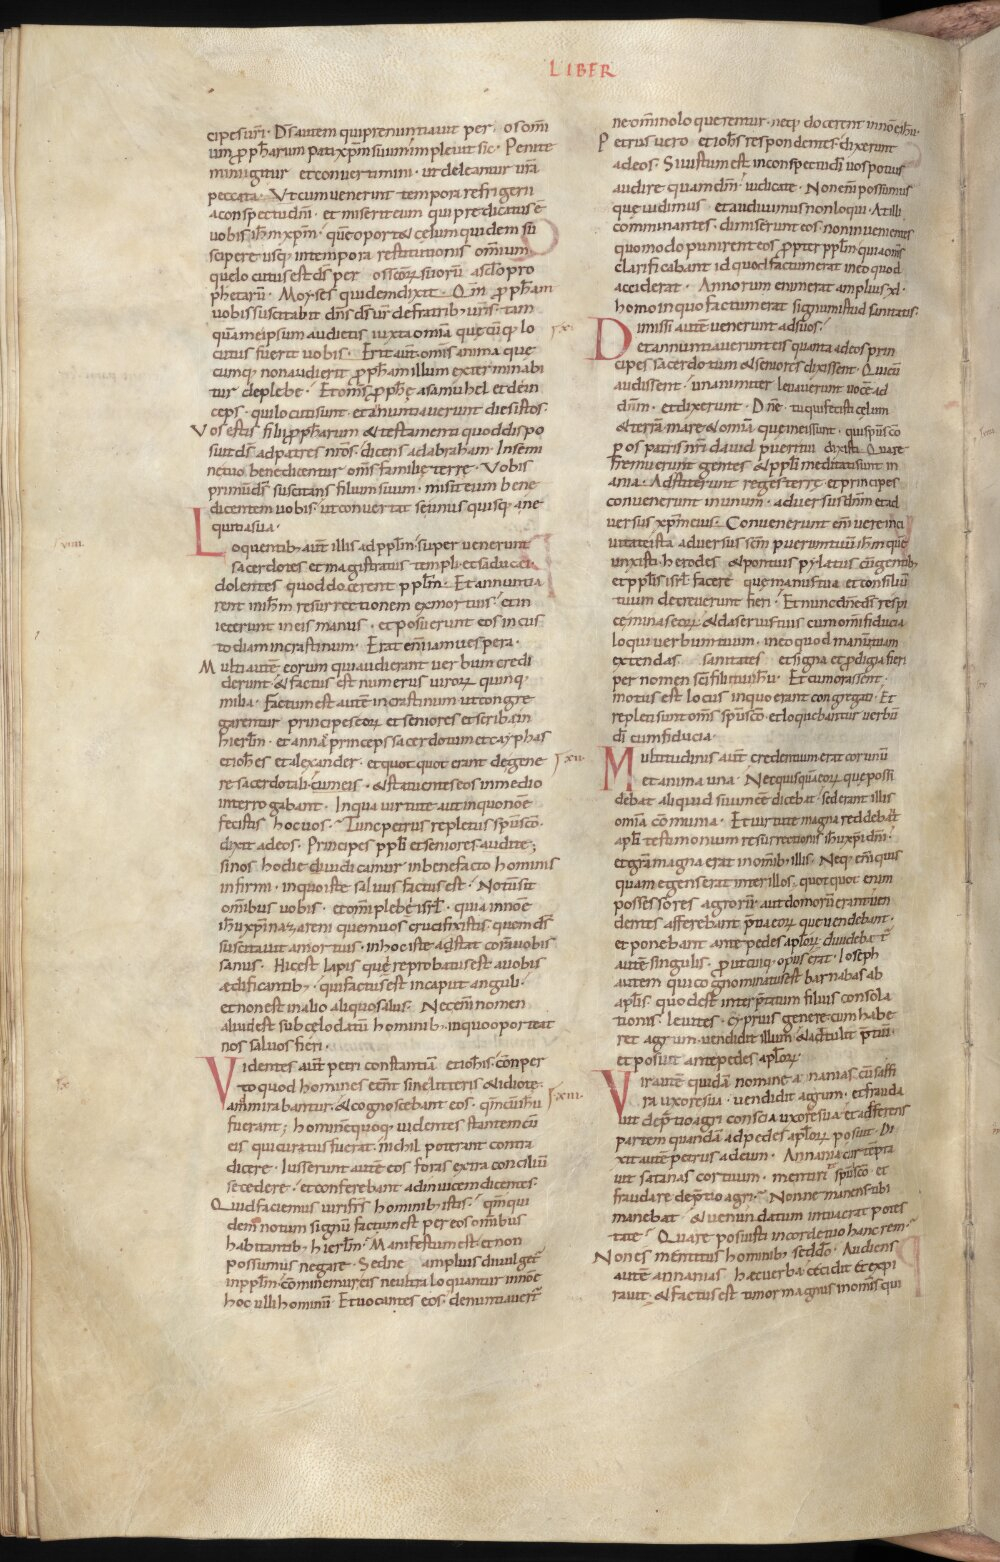 LIBER
cipes ur̄i· D̄s autem qui prenuntiauit per os om̄i
um ꝓpħarum pati xp̄m suum impleuit sic· Penite
mini igitur et conuertimini· ut deleantur ur̄a
peccata· Ut cum uenerint tempora refrigerii
a conspectu dn̄i· et miserit eum qui predicatus ē
uobis ih̄m xp̄m· quē oport& cęlum quidem su
scipere usq; in tempora restitutionis omnium
que locutus est d̄s per os sc̄orꝝ suorū a sc̄lo pro
phetarū· Moyses quidem dixit· Qm̄ ꝓpħam
uobis suscitabit dn̄s d̄s ur̄ de fratrib; ur̄is· tam
quā meipsum audietis iuxta om̄ia quęcūq; lo
cutus fuerit uobis· Erit aut̄ om̄is anima que
cumq; non audierit ꝓpħam illum exterminabi
tur de plebe· Et om̄s ꝓpħę a samuhel et dein
ceps· qui locuti sunt et annuntiauerunt dies istos·
Vos estis filii ꝓpħarum & testamenti quod dispo
suit d̄s ad patres nr̄os· dicens ad abraham· In semi
ne tuo benedicentur om̄s familię terre· Vobis
primū d̄s suscitans filium suum· misit eum bene
dicentem uobis· ut conuertat se unus quisq; a ne
quitia sua·
Loquentib; aut̄ illis ad ppl̄m· superuenerunt
sacerdotes et magistratus templi et saducei
dolentes quod docerent ppl̄m· Et annuntia
rent in ih̄m resurrectionem ex mortuis· et in
iecerunt in eis manus· et posuerunt eos in cus
todiam in crastinum· Erat eni iam uespera·
Multi autē eorum qui audierant uerbum credi
derunt & factus est numerus uirorꝝ quinq;
milia· Factum est autē in crastinum ut congre
garentur principes eorꝝ et seniores et scribę in
hierl̄m· et annas princeps sacerdotum et cayphas
et ioh̄es et alexander· et quot quot erant de gene
re sacerdotali· cum eis· & statuentes eos in medio
interrogabant· In qua uirtute aut in quo noē
fecistis hoc uos· Tunc petrus repletus sp̄u sc̄o·
dixit ad eos· Principes ppl̄i et seniores audite;
si nos hodie diiudicamur in benefacto hominis
infirmi· in quo iste saluus factus est· Notū sit
om̄ibus uobis· et om̄i plebę isrl̄· quia in noē
ih̄u xp̄i nazareni quem uos crucifixistis· quem d̄s
suscitauit a mortuis· in hoc iste adstat corā uobis
sanus· Hic est lapis quę reprobatus est a uobis
ædificantib;· qui factus est in caput anguli·
et non est in alio aliquo salus· Nec eni nomen
aliud est sub celo datū hominib;· in quo oporteat
nos saluos fieri·
Videntes aut̄ petri constantiā et ioh̄is· conper
to quod homines eēnt sine litteris & idiote·
ammirabantur· & cognoscebant eos· qm̄ cū ih̄u
fuerant; hominē quoq; uidentes stantem cū
eis qui curatus fuerat· nichil poterant contra
dicere· Iusserunt autē eos foras extra conciliū
secedere· et conferebant ad inuicem dicentes·
Quid faciemus uiris hominib; istis· qm̄ qui
dem notum signū factum est per eos om̄ibus
habitantib; hierl̄m· Manifestum est et non
possumus negare· Sed ne amplius diuulget̄
in ppl̄m· cōminemur eis ne ultra loquantur in noē
hoc ulli hominū· Et uocantes eos· denuntiauer̄t
ne om̄ino loquerentur· neq; docerent in nōe ih̄u·
Petrus uero et ioh̄s respondentes· dixerunt
ad eos· Si iustum est in conspectu di uos potius
audire quam dm̄ iudicate· Non eni possumus
que uidimus et audiuimus non loqui· At illi
comminantes· dimiserunt eos· non inuenientes
quomodo punirent eos ꝓpter ppl̄m· quia om̄s
clarificabant id quod factum erat in eo quod
acciderat· Annorum eni erat amplius xl·
homo in quo factum erat signum istud sanitatis·
Dimissi autē uenerunt ad suos·
et annuntiauerunt eis quanta ad eos prin
cipes sacerdotum & seniores dixissent· Qui cū
audissent· unanimiter leuauerunt uocē ad
dn̄m· et dixerunt· Dn̄e· tu qui fecisti celum
& terrā mare & om̄ia que in eis sunt· qui sp̄u sc̄o
p os patris nr̄i dauid pueri tui dixisti· Quare
fremuerunt gentes & ppl̄i meditati sunt in
ania· Adstiterunt reges terrę et principes
conuenerunt in unum· aduersus dn̄m et ad
uersus xp̄m eius· Conuenerunt eni uere in ci
uitate ista aduersus sc̄m puerum tuū ih̄m quē
unxisti herodes & pontius pylatus cū gentib;
et ppl̄is isrl̄ facere quę manus tua et consiliū
tuum decreuerunt fieri· Et nunc dn̄e d̄s respi
ce minas eorꝝ & da seruis tuis cum om̄i fiducia
loqui uerbum tuum· in eo quod manū tuam
extendas sanitates et signa et ꝓdigia fieri
per nomen sc̄i filii tui ih̄u· Et cum orassent·
motus est locus in quo erant congregati· Et
repleti sunt om̄s sp̄u sc̄o· et loquebantur uerbū
di cum fiducia·
Multitudinis aut̄ credentium erat cor unū
et anima una· Nec quisquā eorꝝ quę possi
debat aliquid suum eē dicebat· sed erant illis
om̄ia cōmunia· Et uirtute magna reddebāt
apl̄i testimonium resurrectionis ih̄u xp̄i dn̄i·
et gr̄a magna erat in om̄ib; illis· Neq; eni quis
quam egens erat inter illos· quot quot enim
possessores agrorū aut domorū erant uen
dentes afferebant p̄tia eorꝝ que uendebant·
et ponebant ante pedes apl̄orꝝ· diuidebat̄
autē singulis· ꝓut cuiq; opus erat· Ioseph
autem qui cognominatus est barnabas ab
apl̄is· quod est interp̄tatum filius consola
tionis· leuites· cyprius genere· cum habe
ret agrum· uendidit illum & adtulit p̄tiū·
et posuit ante pedes apl̄orꝝ·
Vir autē quidā nomine ananias cū saffi
ra uxore sua· uendidit agrum· et frauda
uit de p̄tio agri conscia uxore sua· et adferens
partem quandā ad pedes apl̄orꝝ posuit· Di
xit autē petrus ad eum· Annania cur tēpta
uit satanas cor tuum· mentiri sp̄u sc̄o· et
fraudare de p̄tio agri· Nonne manens tibi
manebat· & uenundatum in tua erat potes
tate· Quare posuisti in corde tuo hanc rem·
Non es mentitus hominib; sed dō· Audiens
autē annanias hæc uerba· cecidit et expi
rauit· & factus est timor magnus in om̄s qui